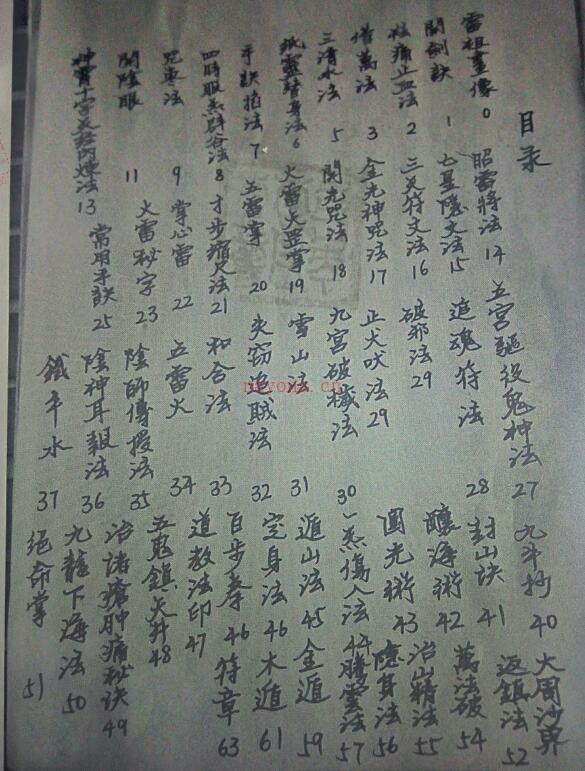 目录
雷祖畫像 0
開劍訣 1
祛痛止血法 2
借萬法 3
三清水法 5
紙靈替身法 6
手訣掐法 7
四時服炁辟谷法 8
咒棗法 9
開陰眼 11
神霄十字天经內煉法 13
昭雷將法 14
七星隱文法 15
三炁符文法 16
金光神咒法 17
開光咒法 18
火雷火罡掌 19
五雷掌 20
才步缩尺法 21
掌心雷 22
火雷秘字 23
常用手訣 25
五宮驅役鬼神法 27
追魂符法 28
破邪法 29
止犬吠法 29
九宮破穢法 30
雪山法 31
失窃追賊法 32
和合法 33
五雷火 34
陰師傳授法 35
陰神耳報法 36
鐵牢水 37
九斗抄 40
封山诀 41
釀海術 42
圓光術 43
一炁傷人法 44
遁山法 45
定身法 46
百步拳 46
道教法印 47
五鬼鎮天升 48
治諸瘡肿痛秘诀 49
九龍下海法 50
絕命掌 51
大周沙界
返鎮法 52
萬法破 54
治山精法 55
隱身法 56
騰雲法 57
金遁 59
木遁 61
符章 63